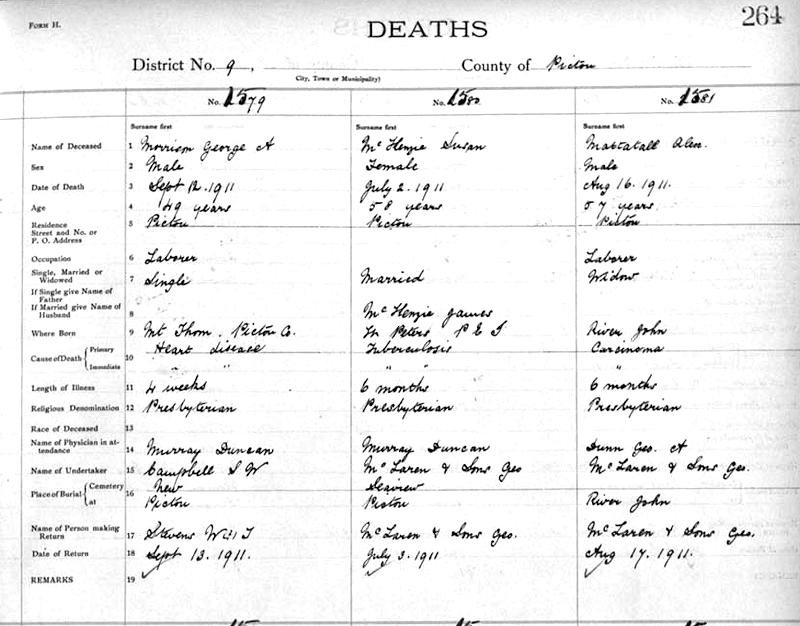 FORM H.
DEATHS
264
District No. 9, County of Pictou
City, Town or Municipality)
No. 1579 No. 1580 No. 1581
Surname first Surname first Surname first
Name of Deceased 1 Morrison George A McKenzie Susan Mattatall Alex.
Sex 2 Male Female Male
Date of Death 3 Sept 12. 1911 July 2. 1911 Aug 16. 1911.
Age 4 49 years 58 years 57 years
Residence 5 Pictou Pictou Pictou
Street and No. or
P. O. Address
Occupation 6 Laborer Laborer
Single, Married or
Widowed 7 Single Married Widow
If Single give Name of
Father
If Married give Name of
Husband 8 McKenzie James
Where Born 9 Mt Thom, Pictou Co. St Peters P E I River John
Cause of Death { Primary 10 Heart disease Tuberculosis Carcinoma
Immediate " " " "
Length of Illness 11 4 weeks 6 months 6 months
Religious Denomination 12 Presbyterian Presbyterian Presbyterian
Race of Deceased 13
Name of Physician in at-
tendance 14 Murray Duncan Murray Duncan Dunn Geo. A
Name of Undertaker 15 Campbell S W McLaren & Sons Geo McLaren & Sons Geo.
Place of Burial { Cemetery 16 New Seaview
at Pictou Pictou River John
Name of Person making
Return 17 Stevens McLaren & Sons Geo. McLaren & Sons Geo.
Date of Return 18 Sept 13. 1911. July 3. 1911 Aug 17. 1911.
REMARKS 19